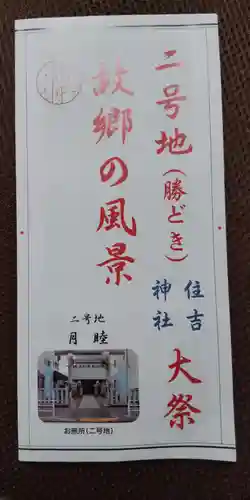 二号地(勝どき)
住吉
神社
大祭
故郷の風景
二号地
月 睦
お旅所(二号地)